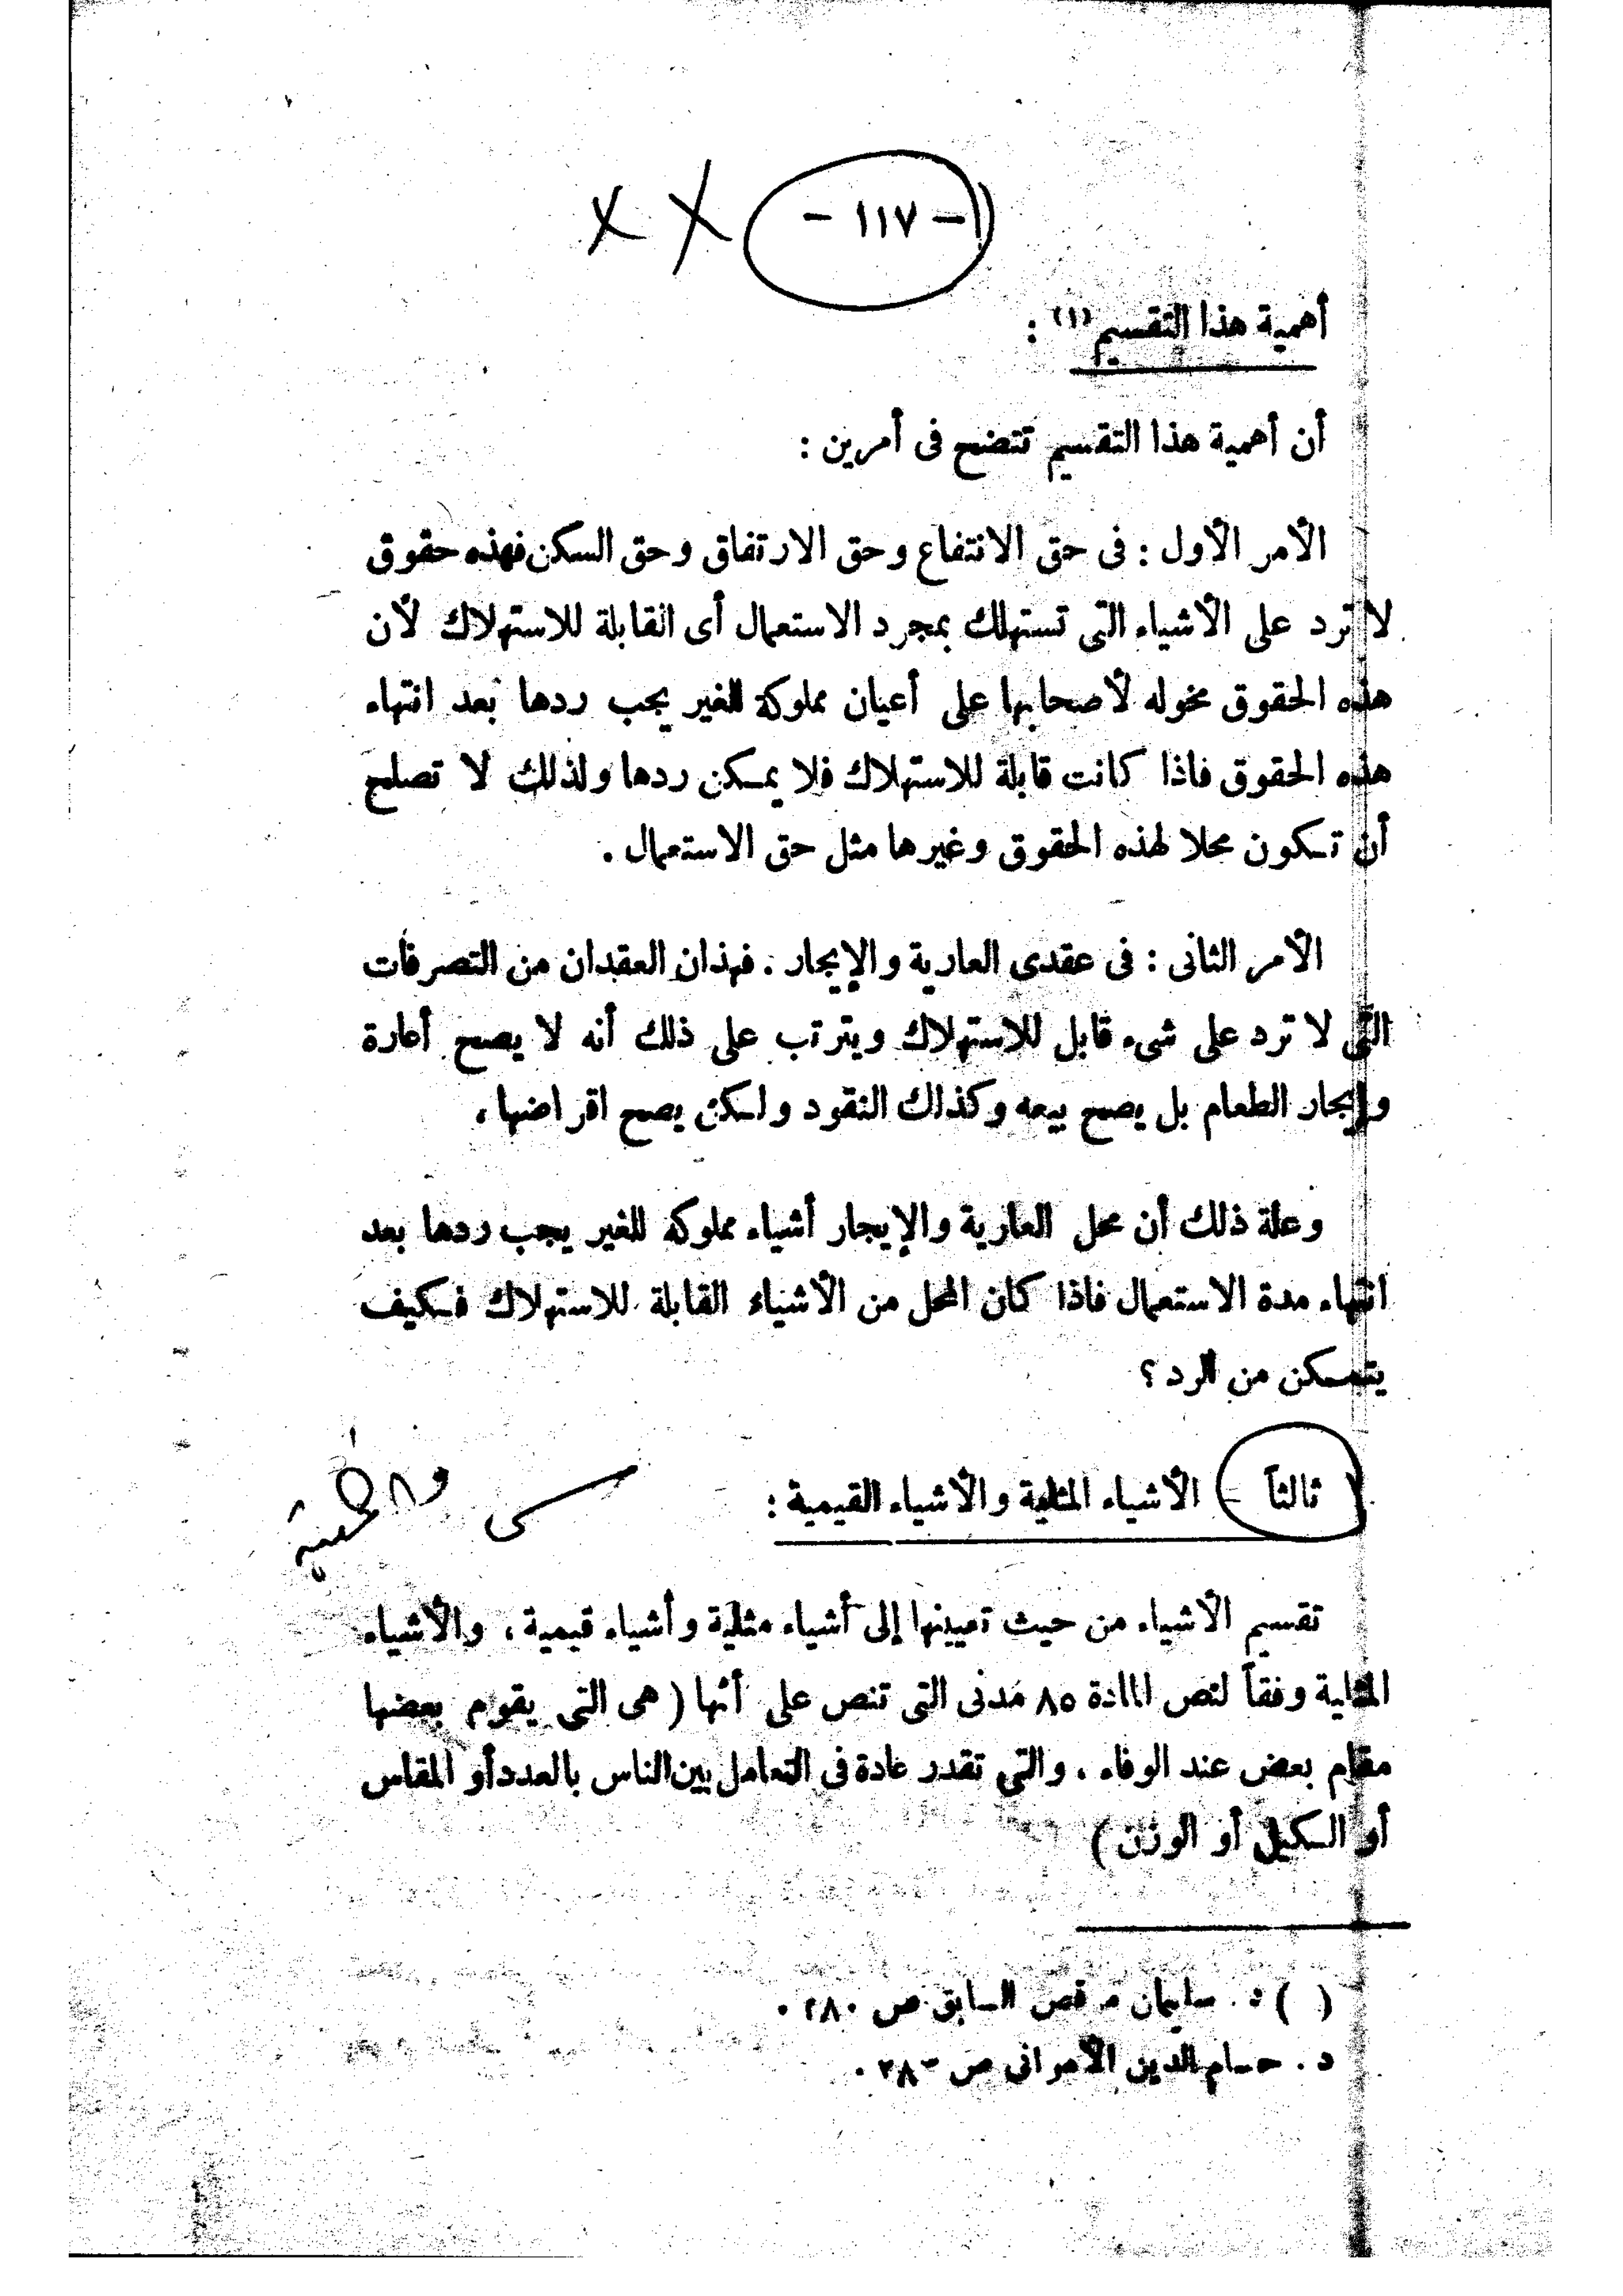 - ١١٧ -
أهمية هذا التقسيم (١) :
أن أهمية هذا التقسيم تتضح فى أمرين :
الأمر الأول : فى حق الانتفاع وحق الارتفاق وحق السكن فهذه حقوق
لا ترد على الأشياء التى تستهلك بمجرد الاستعمال أى القابلة للاستهلاك لأن
هذه الحقوق مخوله لأصحابها على أعيان مملوكة للغير يجب ردها بعد انتهاء
هذه الحقوق فاذا كانت قابلة للاستهلاك فلا يمكن ردها ولذلك لا تصلح
أن تكون محلا لهذه الحقوق وغيرها مثل حق الاستعمال .
الأمر الثانى : فى عقدى العارية والإيجار . فهذان العقدان من التصرفات
التى لا ترد على شىء قابل للاستهلاك ويترتب على ذلك أنه لا يصح أعارة
وإيجار الطعام بل يصح بيعه وكذلك النقود ولكن يصح اقراضها .
وعلة ذلك أن محل العارية والإيجار أشياء مملوكه للغير يجب ردها بعد
انتهاء مدة الاستعمال فاذا كان المحل من الأشياء القابلة للاستهلاك فكيف
يتمكن من الرد ؟
ثالثاً - الأشياء المثلية والأشياء القيمية :
تقسيم الأشياء من حيث تعيينها إلى أشياء مثلية وأشياء قيمية ، والأشياء
المثلية وفقاً لنص المادة ٨٥ مدنى التى تنص على أنها ( هى التى يقوم بعضها
مقام بعض عند الوفاء . والتى تقدر عادة فى التعامل بين الناس بالعدد أو المقاس
أو الكيل أو الوزن )
( ) د . سليمان مرقص السابق ص ٢٨٠ .
د . حسام الدين الأهوانى ص ٢٨٣ .